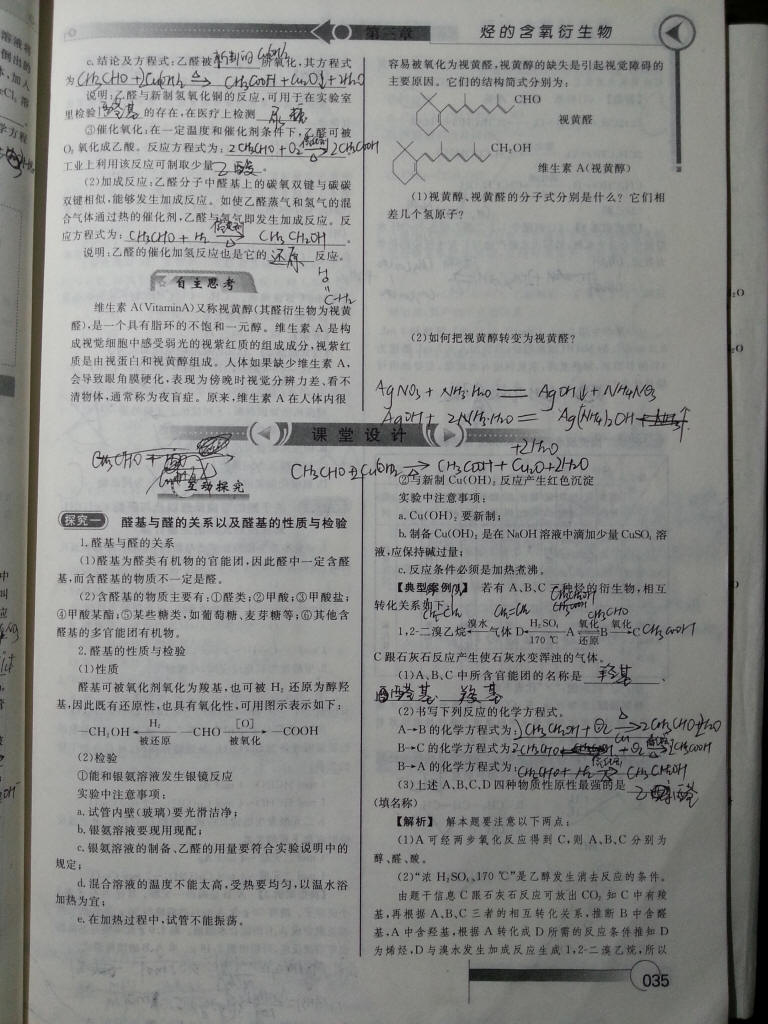 第三章 烃的含氧衍生物
c.结论及方程式:乙醛被新制的Cu(OH)₂所氧化,其方程式
为CH₃CHO+2Cu(OH)₂ △→ CH₃COOH+Cu₂O↓+2H₂O
说明:乙醛与新制氢氧化铜的反应,可用于在实验室
里检验醛基的存在,在医疗上检测尿糖
③催化氧化:在一定温度和催化剂条件下,乙醛可被
O₂氧化成乙酸。反应方程式为:2CH₃CHO+O₂ 催化剂△→ 2CH₃COOH
工业上利用该反应可制取少量乙酸。
(2)加成反应:乙醛分子中醛基上的碳氧双键与碳碳
双键相似,能够发生加成反应。如使乙醛蒸气和氢气的混
合气体通过热的催化剂,乙醛与氢气即发生加成反应。反
应方程式为:CH₃CHO+H₂ 催化剂△→ CH₃CH₂OH。
说明:乙醛的催化加氢反应也是它的还原反应。
自主思考
维生素A(VitaminA)又称视黄醇(其醛衍生物为视黄
醛),是一个具有脂环的不饱和一元醇。维生素A是构
成视觉细胞中感受弱光的视紫红质的组成成分,视紫红
质是由视蛋白和视黄醇组成。人体如果缺少维生素A,
会导致眼角膜硬化,表现为傍晚时视觉分辨力差、看不
清物体,通常称为夜盲症。原来,维生素A在人体内很
容易被氧化为视黄醛,视黄醇的缺失是引起视觉障碍的
主要原因。它们的结构简式分别为:
CHO
视黄醛
CH₂OH
维生素A(视黄醇)
(1)视黄醇、视黄醛的分子式分别是什么?它们相
差几个氢原子?
(2)如何把视黄醇转变为视黄醛?
AgNO₃+NH₃·H₂O = AgOH↓+NH₄NO₃
AgOH+2NH₃·H₂O = Ag(NH₃)₂OH
+2H₂O
课堂设计
CH₃CHO+2Cu(OH)₂ △→ CH₃COOH+Cu₂O+2H₂O
互动探究
探究一 醛基与醛的关系以及醛基的性质与检验
1.醛基与醛的关系
(1)醛基为醛类有机物的官能团,因此醛中一定含醛
基,而含醛基的物质不一定是醛。
(2)含醛基的物质主要有:①醛类;②甲酸;③甲酸盐;
④甲酸某酯;⑤某些糖类,如葡萄糖、麦芽糖等;⑥其他含
醛基的多官能团有机物。
2.醛基的性质与检验
(1)性质
醛基可被氧化剂氧化为羧基,也可被H₂还原为醇羟
基,因此既有还原性,也具有氧化性,可用图示表示如下:
—CH₂OH ←H₂ 被还原 —CHO [O] 被氧化→ —COOH
(2)检验
①能和银氨溶液发生银镜反应
实验中注意事项:
a.试管内壁(玻璃)要光滑洁净;
b.银氨溶液要现用现配;
c.银氨溶液的制备、乙醛的用量要符合实验说明中的
规定;
d.混合溶液的温度不能太高,受热要均匀,以温水浴
加热为宜;
e.在加热过程中,试管不能振荡。
②与新制Cu(OH)₂反应产生红色沉淀
实验中注意事项:
a.Cu(OH)₂要新制;
b.制备Cu(OH)₂是在NaOH溶液中滴加少量CuSO₄溶
液,应保持碱过量;
c.反应条件必须是加热煮沸。
【典型案例】 若有A、B、C三种烃的衍生物,相互
转化关系如下:
CH₂=CH₂ CH₃CHO
1,2-二溴乙烷 ←溴水 气体D ←H₂SO₄ 170 ℃ A ⇌氧化 还原 B 氧化→ C CH₃COOH
C跟石灰石反应产生使石灰水变浑浊的气体。
(1)A、B、C中所含官能团的名称是 羟基 、
醛基、羧基
(2)书写下列反应的化学方程式。
A→B的化学方程式为:2CH₃CH₂OH+O₂ Cu△→ 2CH₃CHO+2H₂O
B→C的化学方程式为:2CH₃CHO+O₂ 催化剂△→ 2CH₃COOH
B→A的化学方程式为:CH₃CHO+H₂ 催化剂→ CH₃CH₂OH
(3)上述A、B、C、D四种物质性原性最强的是 乙醛
(填名称)
【解析】 解本题要注意以下两点:
(1)A可经两步氧化反应得到C,则A、B、C分别为
醇、醛、酸。
(2)“浓H₂SO₄、170 ℃”是乙醇发生消去反应的条件。
由题干信息C跟石灰石反应可放出CO₂知C中有羧
基,再根据A、B、C三者的相互转化关系,推断B中含醛
基,A中含羟基,根据A转化成D所需的反应条件推知D
为烯烃,D与溴水发生加成反应生成1,2-二溴乙烷,所以
035